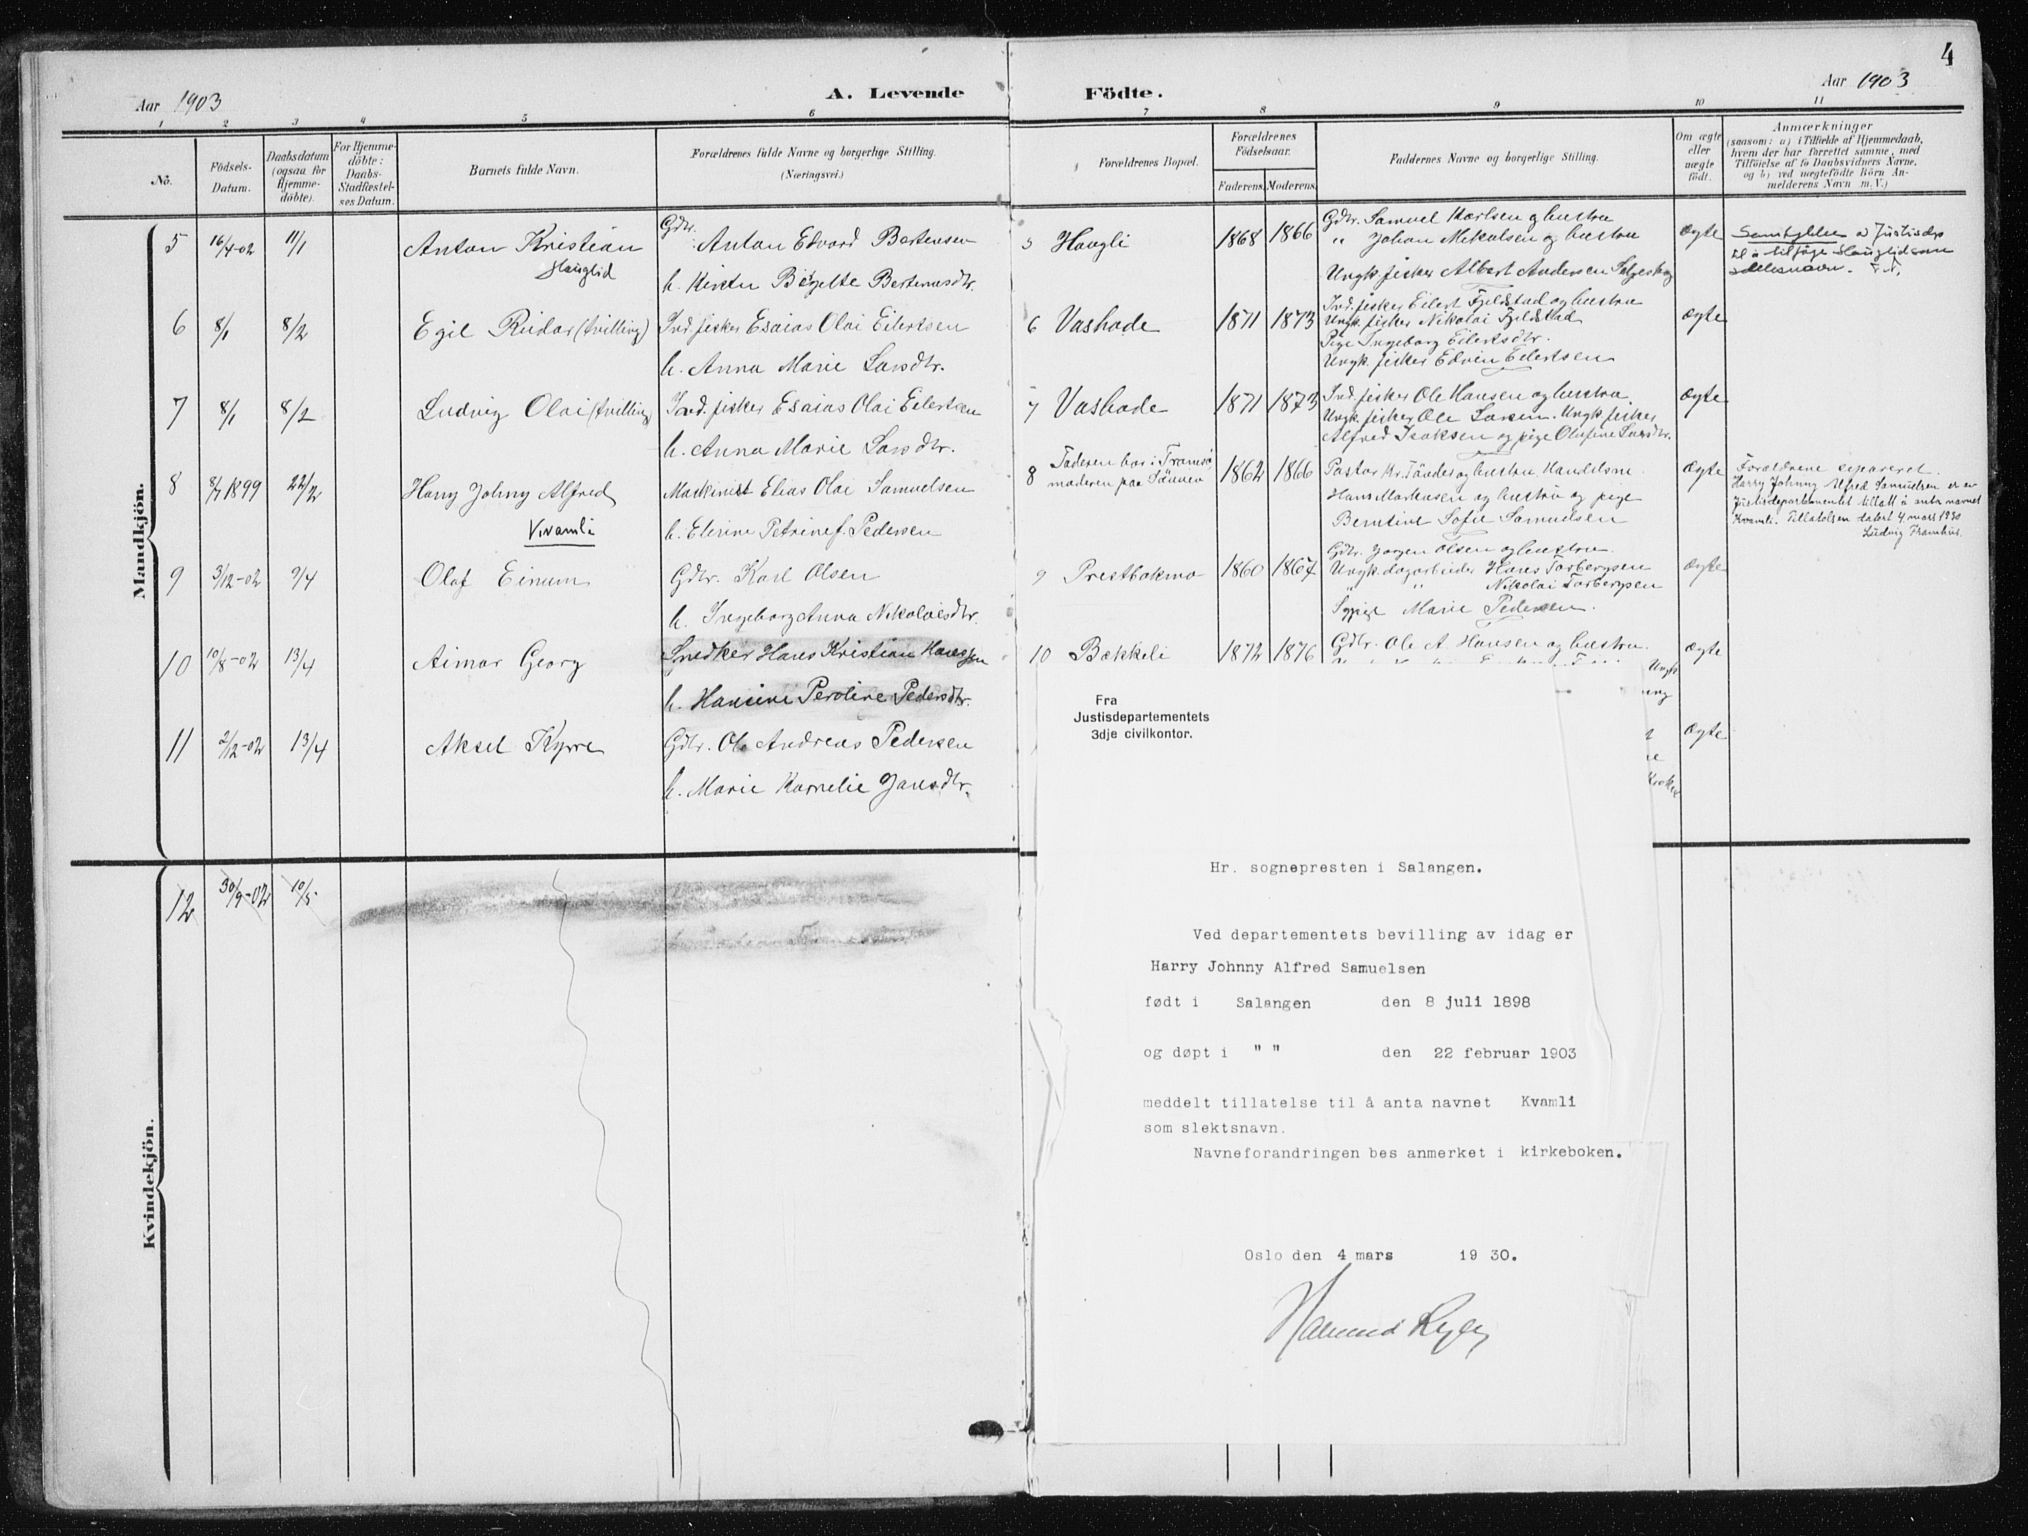 4
Aar 1903
A. Levende
Födte.
Aar 1903
1 2 3 4 5 6 7 8 9 10 11
No.
Födsels-
Datum.
Daabsdatum
(ogsaa for
Hjemme-
döbte).
For Hjemme-
döbte:
Daabs-
Stadfæstel-
ses Datum.
Barnets fulde Navn.
Forældrenes fulde Navne og borgerlige Stilling.
(Næringsvei.)
Forældrenes Bopæl.
Forældrenes
Födselsaar.
Faderens. Moderens.
Faddernes Navne og borgerlige Stilling.
Om ægte
eller
uægte
født.
Anmærkninger
(saasom: a) i Tilfælde af Hjemmedaab,
hvem der har forrettet samme, med
Tilföielse af to Daabsvidners Navne,
og b) ved uægtefödte Börn An-
melderens Navn m. V.)
Mandkjön.
5 16/4-02 11/1 Anton Kristian
Hauglid
Gdbr. Anton Edvard Bertensen
h. Kirsten Birgitte Berteusdtr.
5 Haugli 1868 1866
Gdbr. Samuel Karlsen og hustru
" Johan Mikalsen og hustru
Ungk. fisker Albert Andersen
ægte
til å tilføie Hauglid som
slektsnavn.
6 8/1 8/2 Egil Reidar (tvilling)
Ind. fisker Esaias Olai Eilertsen
h. Anna Marie Larsdtr.
6 Vashode 1871 1873
Ind. fisker Eilert Fjeldstad og hustru
Ungk. fisker Nikolai Fjeldstad
Pige Ingeborg Eilertsdtr.
Ungk. fisker Edvin Eilertsen
ægte
7 8/1 8/2 Ludvig Olai (tvilling)
Ind. fisker Esaias Olai Eilertsen
h. Anna Marie Larsdtr.
7 Vashode 1871 1873
Ind. fisker Ole Hansen og hustru.
Ungk. fisker Ole Larsen. Ungk. fisker
Alfred Isaksen og pige Olufine Larsdtr.
ægte
8 8/7 1899 22/2 Harry Johny Alfred
Kvamli
Maskinist Elias Olai Samuelsen
h. Elerine Petrine f. Pedersen
8 Faderen bor i Tromsö,
moderen paa
1862 1866
Pastor Kr. Tandes og hustru Handelsm.
Hans Markusen og hustru og pige
Berntine Sofie Samuelsen
ægte
Forældrene separeret.
Harry Johnny Alfred Samuelsen er av
Justisdepartementet tillatt å anta navnet
Kvamli. Tillatelsen datert 4 mars 1930
Ludvig Framhus.
9 3/12-02 9/4 Olaf Einum
Gdbr. Karl Olsen
h. Ingeborg Anna Nikolaisdtr.
9 Prestbakmo 1860 1867
Gdbr. Jørgen Olsen og hustru.
Ungk. dagarbeider Hans Torbergsen
" " Nikolai Torbergsen
Sypige Marie Pedersen.
ægte
10 10/8-02 13/4 Aimar Georg
Snedker Hans Kristian Hanssen
h. Hansine Peroline Pedersdtr.
10 Bækkeli 1872 1876
Gdbr. Ole A. Hansen og hustru.
ægte
11 2/12-02 13/4 Aksel Kyrre
Gdbr. Ole Andreas Pedersen
h. Marie Kornelie Jansdtr.
ægte
Kvindekjön.
12 30/9-02 10/5
Fra
Justisdepartementets
3dje civilkontor.
Hr. sognepresten i Salangen.
Ved departementets bevilling av idag er
Harry Johnny Alfred Samuelsen
født i Salangen den 8 juli 1898
og døpt i " " den 22 februar 1903
meddelt tillatelse til å anta navnet Kvamli
som slektsnavn.
Navneforandringen bes anmerket i kirkeboken.
Oslo den 4 mars 19 30.